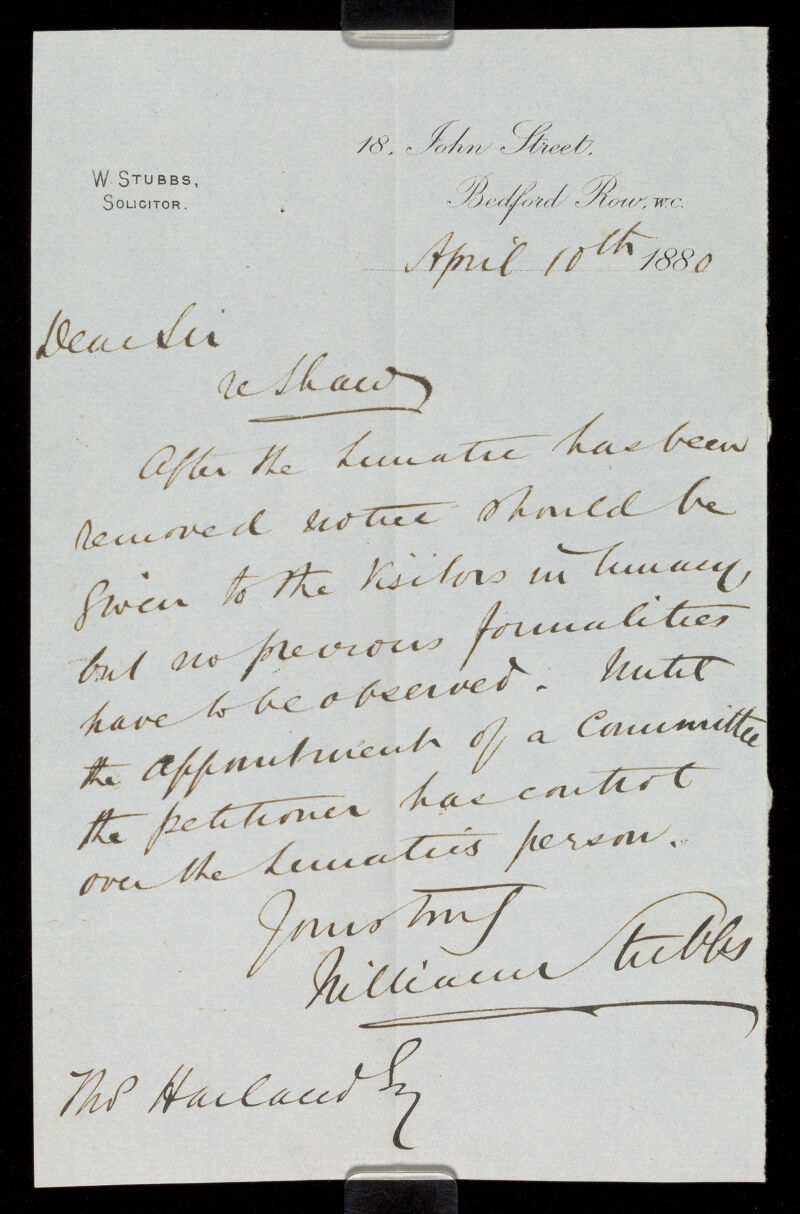 W. STUBBS,
SOLICITOR.
18, John Street,
Bedford Row, W.C.
April 10th 1880
Dear Sir
re Shaw
After the Lunatic has been
removed notice should be
given to the Visitors in Lunacy,
but no previous formalities
have to be observed. Until
the appointment of a Committee
the petitioner has control
over the Lunatic's person.
Yours truly
William Stubbs
Thos Harland Esq